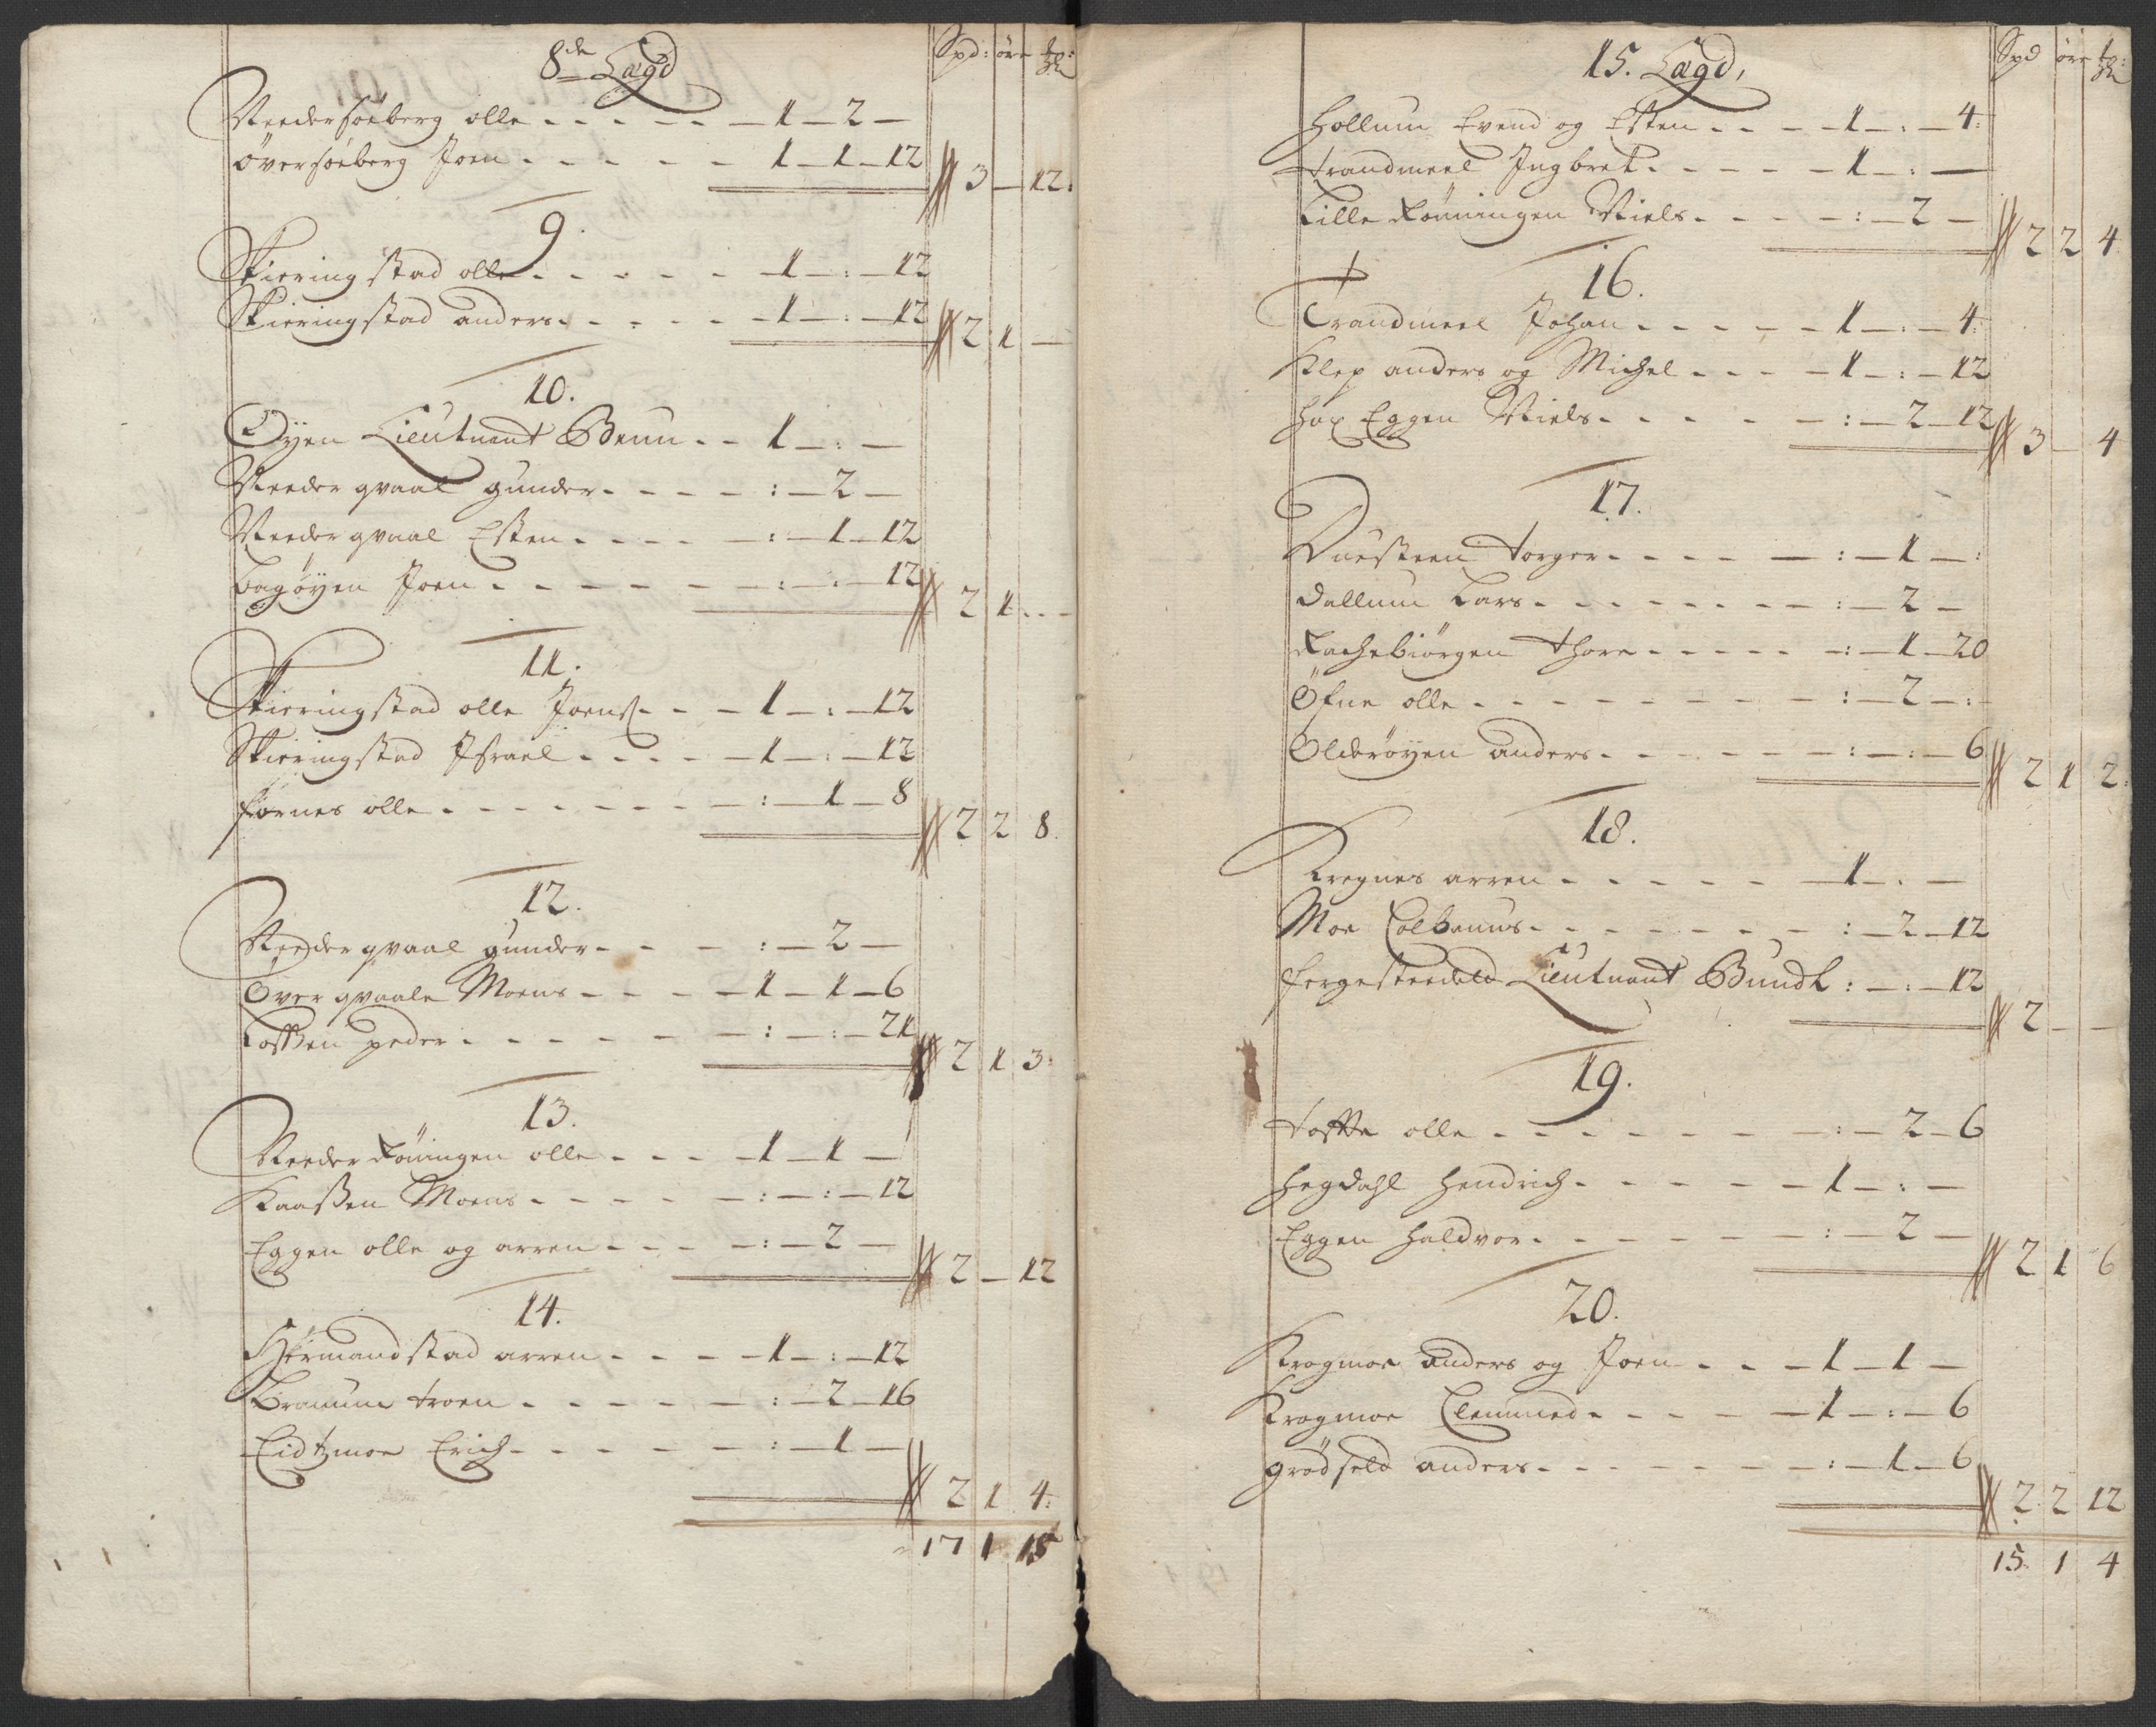 8de Lægd
Spd: öre
Needersöeberg olle - - - - - 1 - 2 -
översöeberg Joen - - - - - 1 - 1 - 12
3 - 12:
9.
Skieringstad olle - - - - - 1 - : - 12
Skieringstad anders - - - - - 1 - : - 12
2 1 -
10.
Öyen Lieutnant Brun - - 1 - : -
Needer gvaal gunder - - - - : - 2 -
Needer gvaal Esten - - - - : - 1 - 12
bagöyen Joen - - - - - : - : - 12
2 1 - -
11.
Skieringstad olle Joens - - - 1 - : - 12
Skieringstad Jsrael - - - - 1 - : - 12
fornes olle - - - - - - : - 1 - 8
2 2 8.
12.
Needer gvaal gunder - - - : - 2 -
Over gvaale Moens - - - - 1 - 1 - 6
Losen peder - - - - - : - : - 21
2 1 3:
13.
Needer Röningen olle - - - 1 - 1 -
Kaassen Moens - - - - - : - : - 12
Eggen olle og arren - - - - : - 2 -
2 - 12
14.
Hermandstad arren - - - - 1 - : - 12
Branum troen - - - - - : - 2 - 16
Eidtzmoe Erich - - - - - : - 1 -
2 1 4:
17 1 15
15. Lægd,
Spd öre
Hollum Evend og Esten - - - 1 - : - 4:
trandmeel Ingbret - - - - - 1 - : -
Lille Rönningen Niels - - - - : - 2 -
2 2 4
16.
Trandmeel Johan - - - - - 1 - : - 4:
Klep anders og Michel - - - 1 - : - 12
Eggen Niels - - - - - : - 2 - 12
3 - 4
17.
Duesteen torger - - - - - : - 1 - :
Dallum Lars - - - - - - : - 2 -
Rachebiörgen thore - - - - : - 1 - 20
Öfne olle - - - - - - - : - 2 - :
Olderöyen anders - - - - - : - : - 6
2 1 2:
18.
Kregnes arren - - - - - 1 - : -
Moe Colbanus - - - - - - : - 2 - 12
Lieutnant Bundt : - : - 12
2 - -
19.
olle - - - - - - : - 2 - 6
Hegdahl Hendrich - - - - - 1 - : -
Eggen Haldvor - - - - - - : - 2 -
2 1 6
20.
Krogmoe anders og Joen - - - 1 - 1 -
Krogmoe Clemmed - - - - 1 - : - 6
grödseld anders - - - - - - : - 1 - 6
2 2 12
15 1 4